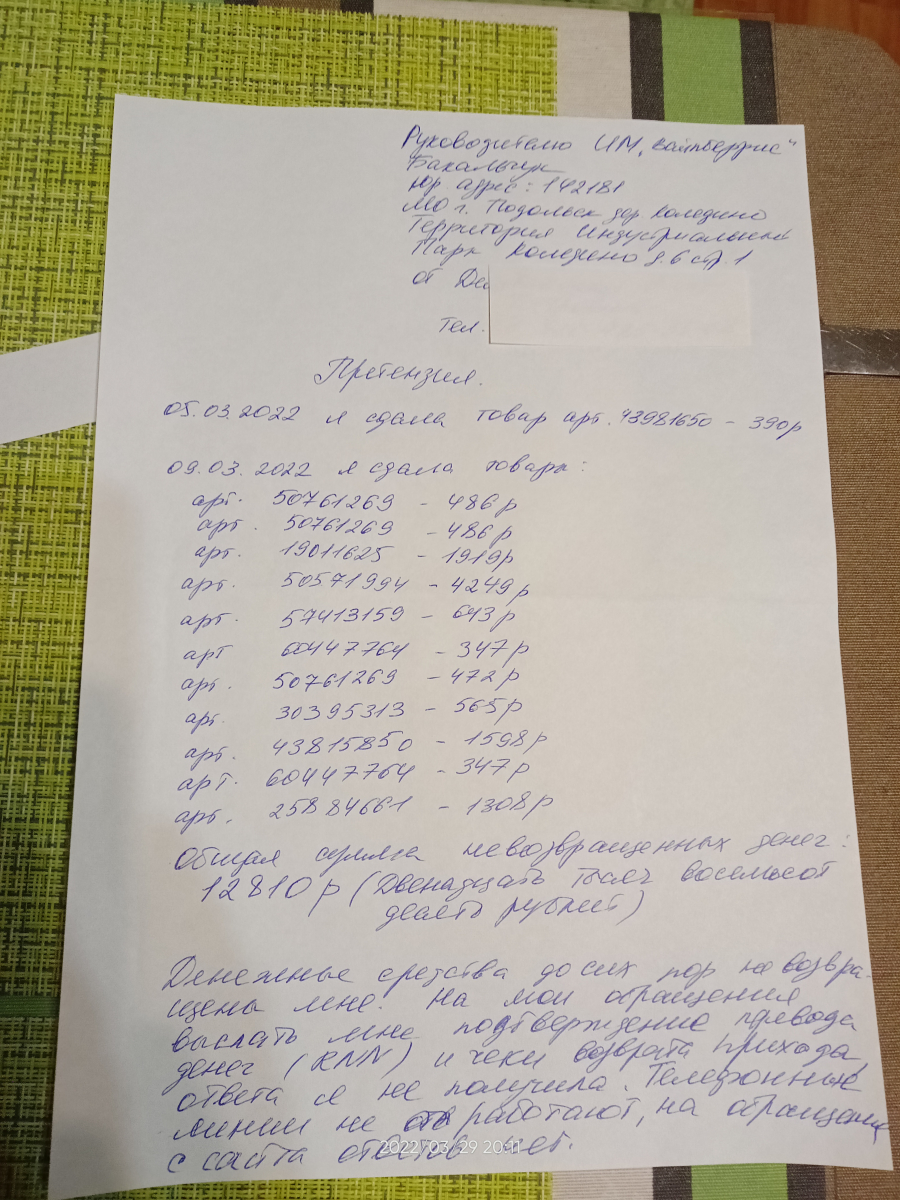 Руководителю ИМ „Вайлберрис"
Бакальчук
юр. адрес: 142181
МО г. Подольск дер Коледино
Территория Индустриальный
Парк Коледино д. 6 стр. 1
от Де
тел.
Претензия.
05.03.2022 я сдала товар арт. 43981650 - 390р
09.03.2022 я сдала товары:
арт. 50761269 - 486р
арт. 50761269 - 486р
арт. 19011625 - 1919р
арт. 50571994 - 4249р
арт. 57413159 - 643р
арт 60447764 - 347р
арт. 50761269 - 472р
арт. 30395313 - 565р
арт. 43815850 - 1598р
арт. 60447764 - 347р
арт. 25884661 - 1308р
Общая сумма невозвращенных денег:
12810р (Двенадцать тысяч восемьсот
десять рублей)
Денежные средства до сих пор не возвра-
щены мне. На мои обращения
выслать мне подтверждение перевода
денег (RNN) и чеки возврата прихода
ответа я не получила. Телефонные
линии не работают, на обращения
с сайта ответов нет.
2022/03/29 20:11